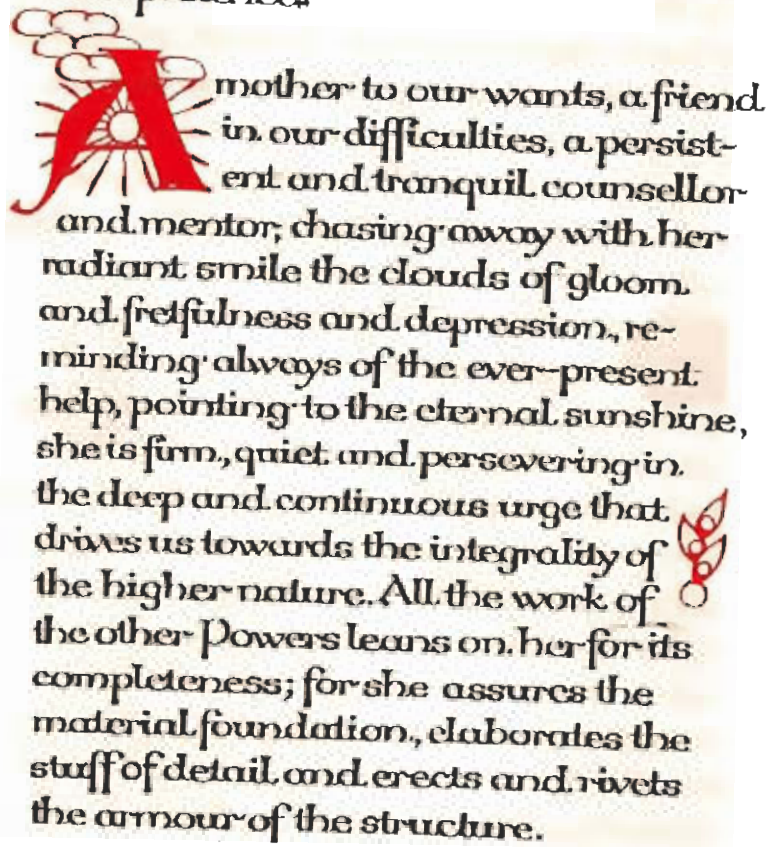 A mother to our wants, a friend
in our difficulties, a persist-
ent and tranquil counsellor
and mentor, chasing away with her
radiant smile the clouds of gloom
and fretfulness and depression, re-
minding always of the ever-present
help, pointing to the eternal sunshine,
she is firm, quiet and persevering in
the deep and continuous urge that
drives us towards the integrality of
the higher nature. All the work of
the other Powers leans on her for its
completeness; for she assures the
material foundation, elaborates the
stuff of detail and erects and rivets
the armour of the structure.